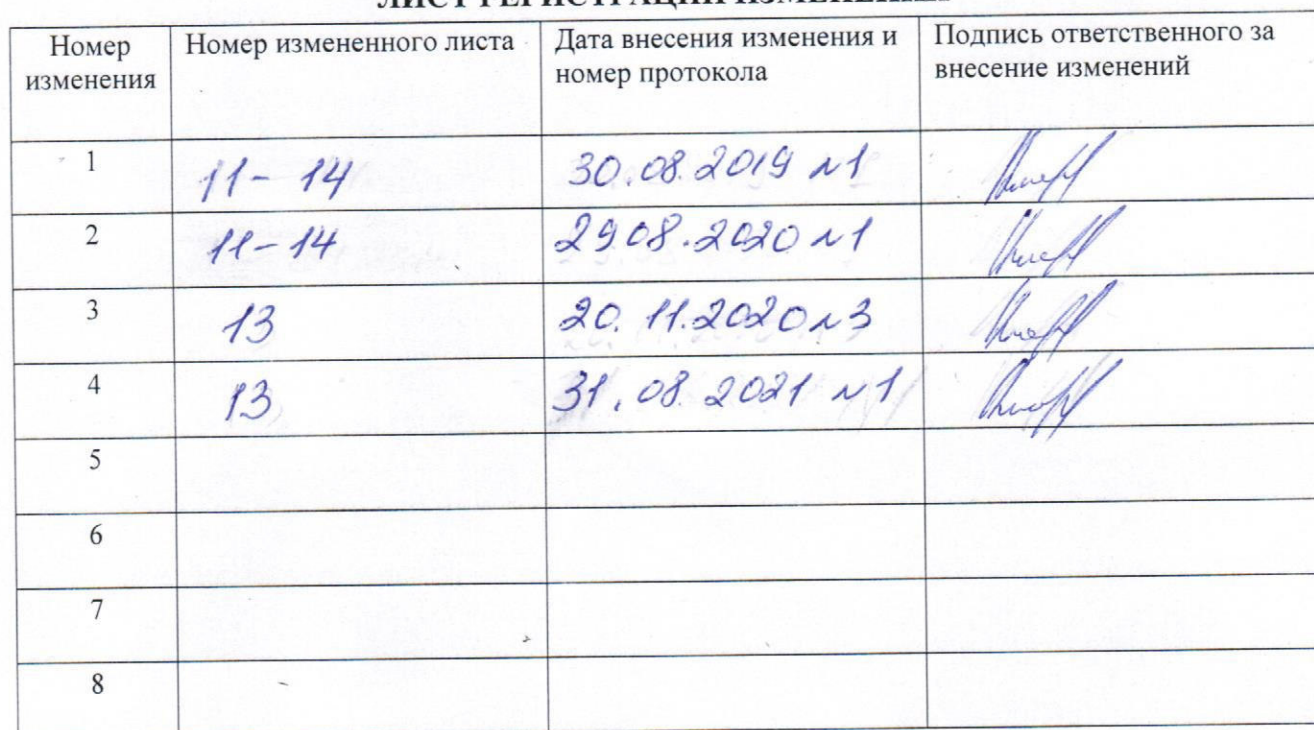 ЛИСТ РЕГИСТРАЦИИ ИЗМЕНЕНИЙ
Номер изменения
Номер измененного листа
Дата внесения изменения и номер протокола
Подпись ответственного за внесение изменений
1
11-14
30.08.2019 №1
2
11-14
29.08.2020 №1
3
13
20.11.2020 №3
4
13
31.08.2021 №1
5
6
7
8